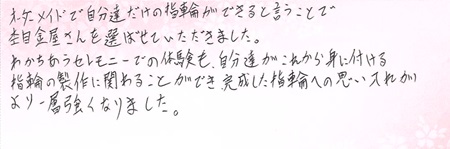 オーダーメイドで自分達だけの指輪ができると言うことで
杢目金屋さんを選ばせていただきました。
わかちあうセレモニーでの体験も、自分達がこれから身に付ける
指輪の製作に関わることができ、完成した指輪への思い入れが
より一層強くなりました。